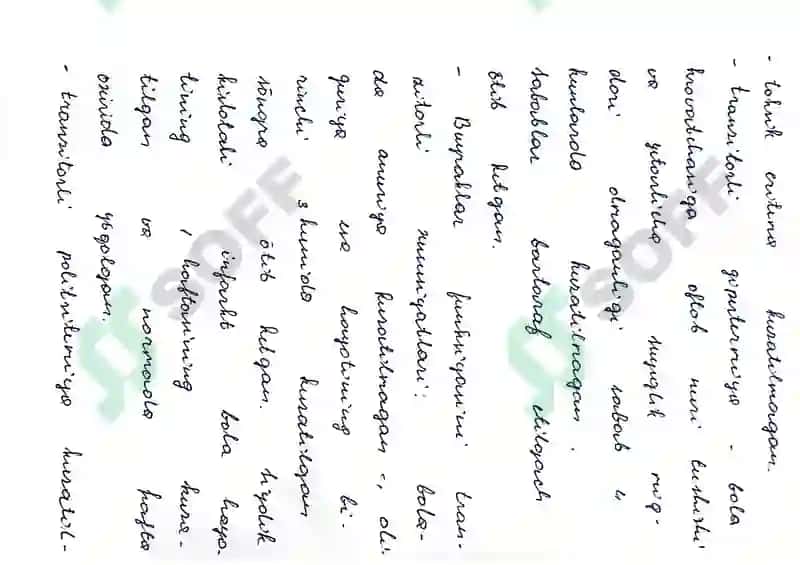 - toksik eritema kuzatilmagan.
- tranzitorli gipertermiya - bola
krovatchasiga oftob nuri tushishi
va yetarlicha suyuqlik mig-
dori olmaganligi sabab 4
kunlarda kuzatilmagan.
sabablar bartaraf etilgach
ötib ketgan.
- Buyraklar funksiyasini tran-
zitorli xususiyatlari: bola-
da anuriya kuzatilmagan, oli-
guriya esa hayotining bi-
rinchi 3 kunida kuzatilgan
söngra ötib ketgan. siydik
kislotali infarkt bola hayo-
tining 1 haftasining kuza-
tilgan va normada hafta
oxirida yöqolgan.
- tranzitorli politsitemiya kuzatil-
SOFF
SOFF